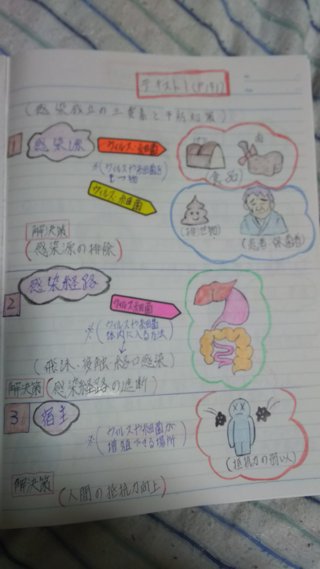 テキスト1 (P.191)
(感染成立の三要素と予防対策)
1 感染源 ウィルス・細菌
※(ウィルスや細菌をもつ物)
(食品)
ウィルス・細菌
(排せつ物) (患者・保菌者)
解決策
(感染源の排除)
2 感染経路
ウィルス・細菌
※(ウィルスや細菌が
体内に入る方法)
(飛沫・接触・経口感染)
解決策 (感染経路の遮断)
3 宿主
※(ウィルスや細菌が
増殖できる場所)
(抵抗力の弱い人)
解決策 (人間の抵抗力向上)